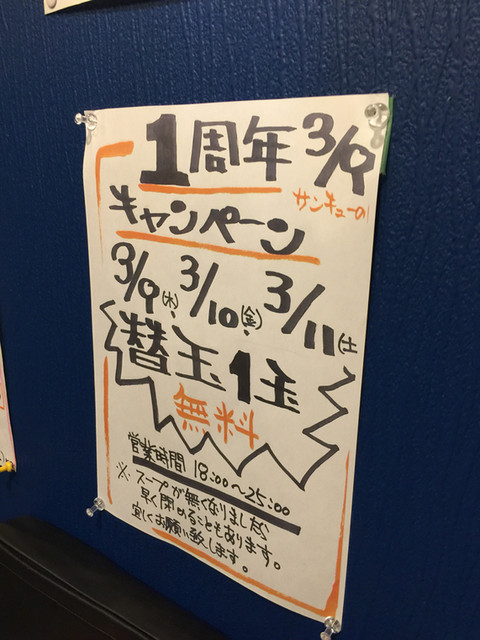 1周年 3/9
サンキューの!
キャンペーン
3/9(木)、3/10(金)、3/11(土)
替玉1玉
無料
営業時間 18:00〜25:00
※ スープが無くなりましたら
早く閉めることもあります。
宜しくお願い致します。